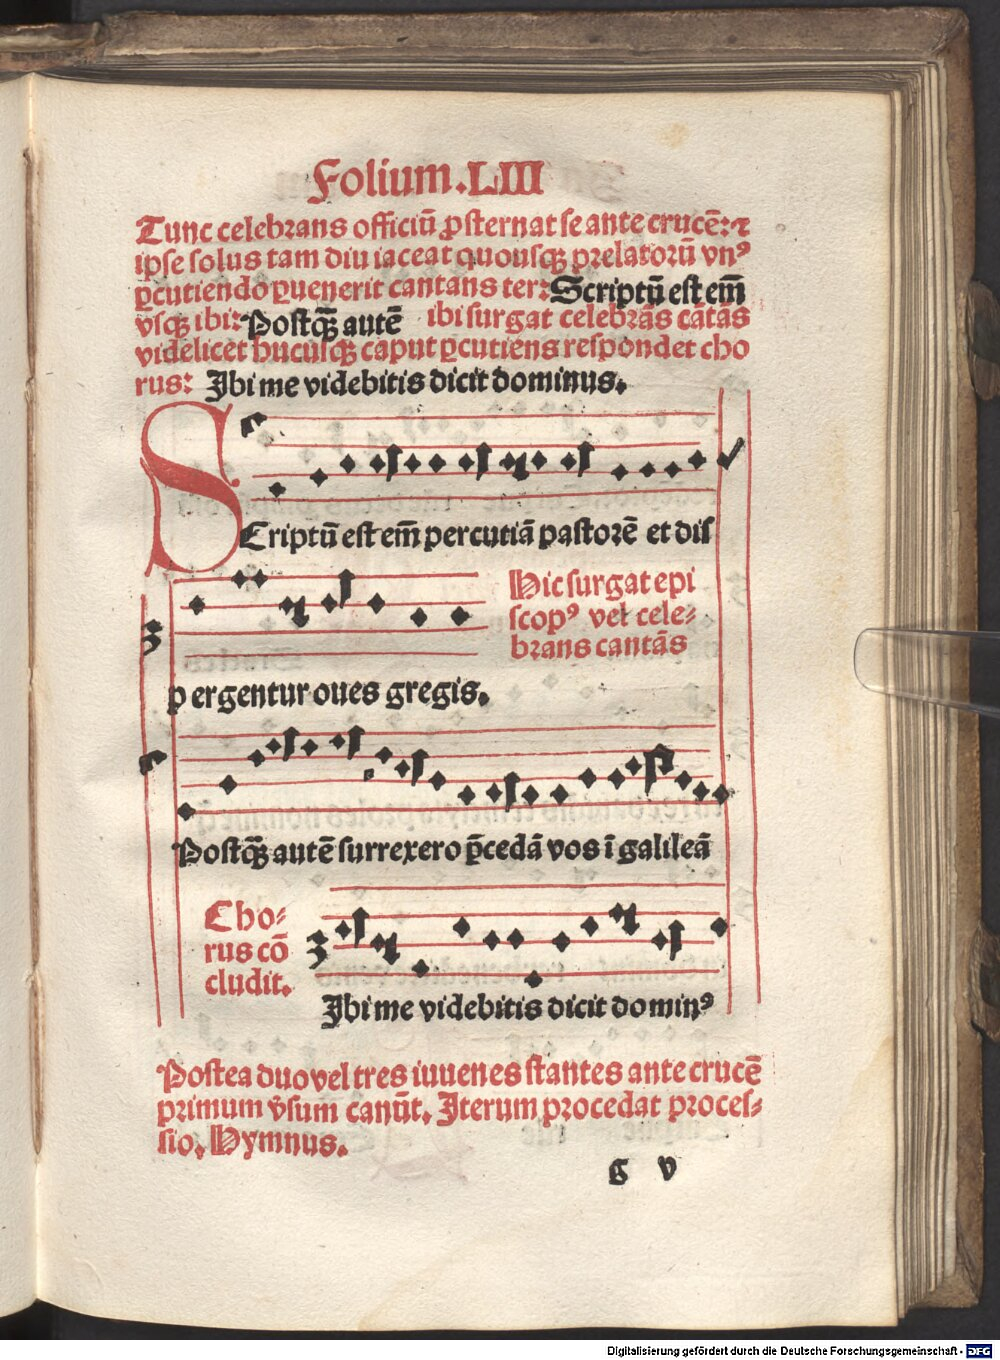 Folium.LIII
Tunc celebrans officiū ꝓsternat se ante crucē: ⁊
ipse solus tam diu iaceat quousqꝫ prelatorū vnꝰ
ꝑcutiendo ꝑuenerit cantans ter: Scriptū est em̄
vsqꝫ ibi: Postqꝫ̄ autē ibi surgat celebrās cātās
videlicet hucusqꝫ caput ꝑcutiens respondet cho
rus: Ibi me videbitis dicit dominus.
SCriptū est em̄ percutiā pastorē et dis
Hic surgat epi
scopꝰ vel cele-
brans cantās
pergentur oues gregis.
Postqꝫ̄ autē surrexero p̄cedā vos ī galileā
Cho-
rus cō
cludit.
Ibi me videbitis dicit dominꝰ
Postea duo vel tres iuuenes stantes ante crucē
primum v̄sum canūt. Iterum procedat proces-
sio. Hymnus.
g v
Digitalisierung gefördert durch die Deutsche Forschungsgemeinschaft - DFG